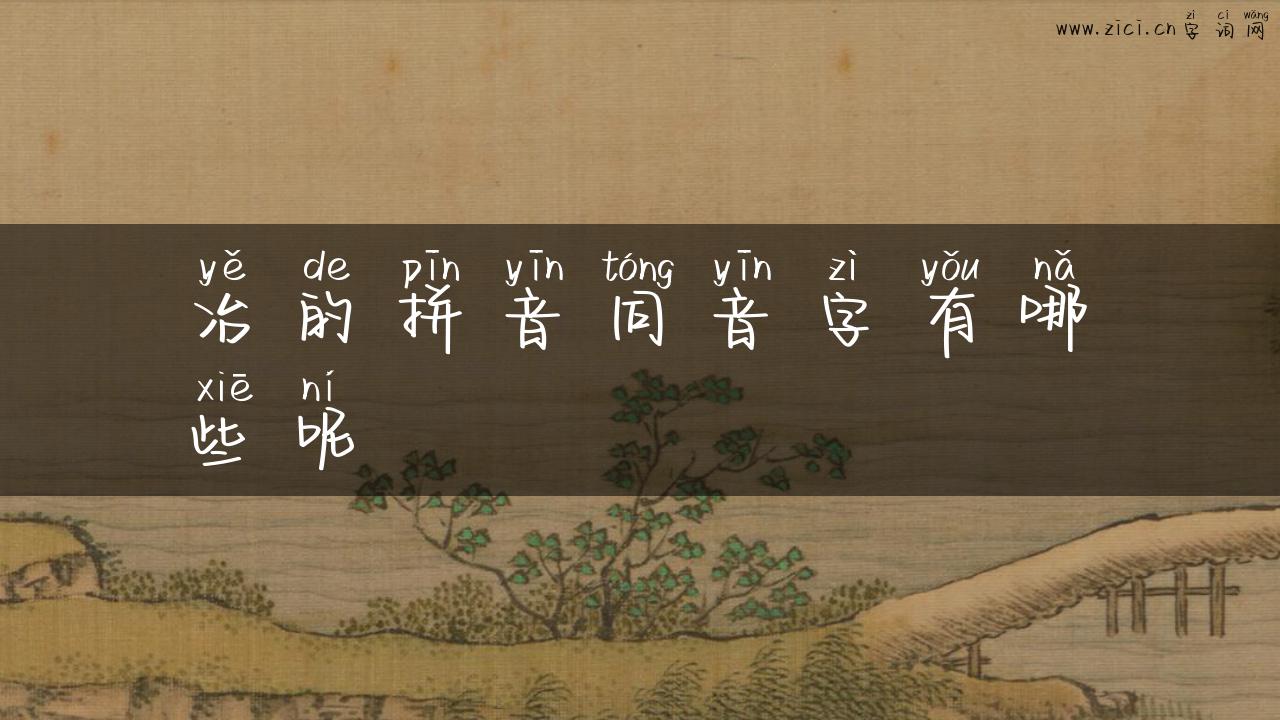 zì cí wǎng
www.zici.cn 字词网
yě de pīn yīn tóng yīn zì yǒu nǎ
冶的拼音同音字有哪
xiē ní
些呢